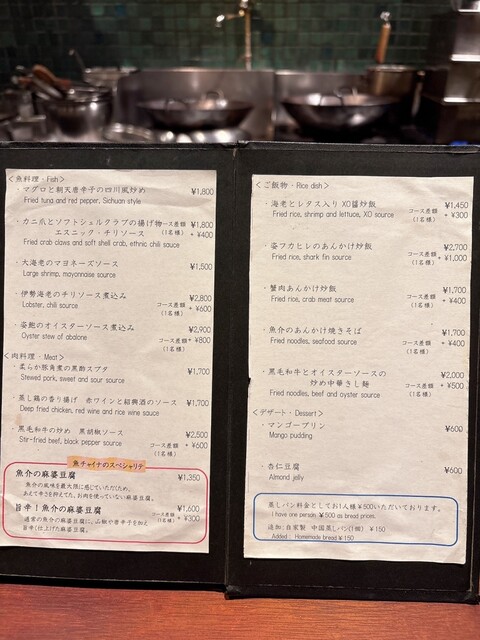 ＜魚料理・Fish＞
・マグロと朝天唐辛子の四川風炒め ¥1,800
Fried tuna and red pepper, Sichuan style
・カニ爪とソフトシェルクラブの揚げ物 コース差額 ¥1,800
エスニック・チリソース (1名様) + ¥400
Fried crab claws and soft shell crab, ethnic chili sauce
・大海老のマヨネーズソース ¥1,500
Large shrimp, mayonnaise source
・伊勢海老のチリソース煮込み ¥2,800
Lobster, chili source コース差額 + ¥600
(1名様)
・姿鮑のオイスターソース煮込み ¥2,900
Oyster stew of abalone コース差額 + ¥800
(1名様)
＜肉料理・Meat＞
・柔らか豚角煮の黒酢スブタ ¥1,700
Stewed pork, sweet and sour source
・蒸し鶏の香り揚げ 赤ワインと紹興酒のソース ¥1,700
Deep fried chicken, red wine and rice wine sauce
・黒毛和牛の炒め 黒胡椒ソース ¥2,500
Stir-fried beef, black pepper source コース差額 + ¥600
(1名様)
魚チャイナのスペシャリテ
魚介の麻婆豆腐 ¥1,350
魚介の風味を最大限に感じていただくため、
あえて辛さを抑えてた、お肉を使っていない麻婆豆腐。
旨辛！魚介の麻婆豆腐 ¥1,600
コース差額 + ¥300
(1名様)
通常の魚介の麻婆豆腐に、山椒や唐辛子を加え
旨辛く仕上げた麻婆豆腐。
＜ご飯物・Rice dish＞
・海老とレタス入り XO醤炒飯 ¥1,450
Fried rice, shrimp and lettuce, XO source コース差額 + ¥300
(1名様)
・姿フカヒレのあんかけ炒飯 ¥2,700
Fried rice, shark fin source コース差額 + ¥1,000
(1名様)
・蟹肉あんかけ炒飯 ¥1,700
Fried rice, crab meat source コース差額 + ¥400
(1名様)
・魚介のあんかけ焼きそば ¥1,700
Fried noodles, seafood source コース差額 + ¥400
(1名様)
・黒毛和牛とオイスターソースの ¥2,000
炒め中華きし麺 コース差額 + ¥500
(1名様)
Fried noodles, beef and oyster source
＜デザート・Dessert＞
・マンゴープリン ¥600
Mango pudding
・杏仁豆腐 ¥600
Almond jelly
蒸しパン料金としてお1人様¥500いただいております。
I have one person ¥500 as bread prices.
追加:自家製 中国蒸しパン(1個) ¥150
Added : Homemade bread ¥150